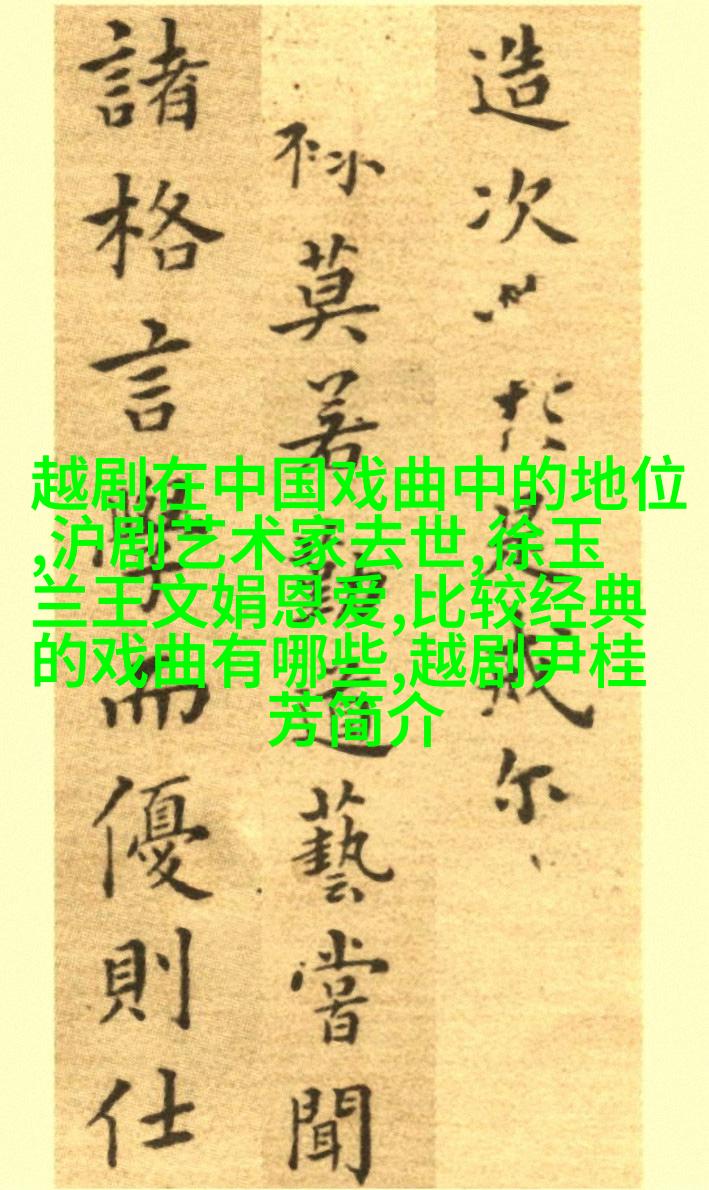 越剧在中国戏曲中的地位
,沪剧艺术家去世,徐玉
兰王文娟恩爱,比较经典
的戏曲有哪些,越剧尹桂
芳简介
造次於是戒尔
莫若勤道藝嘗聞
諸格言學而優則仕